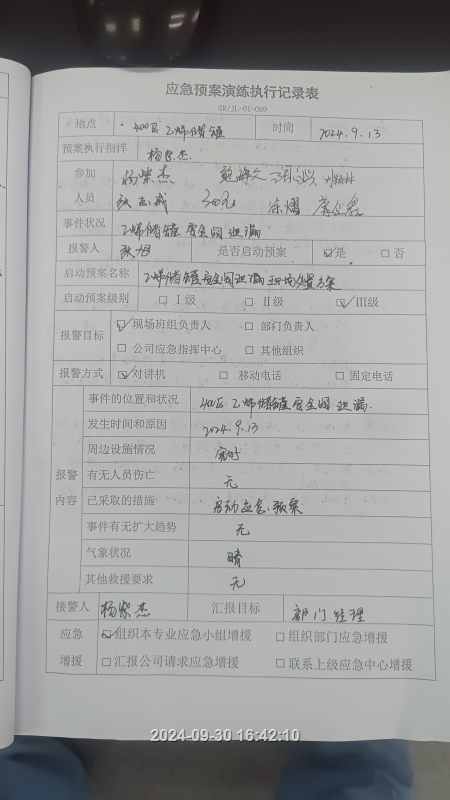 应急预案演练执行记录表
SR/JL-01-099
地点 400区乙烯储罐 时间 2024.9.13
预案执行指挥 杨紫杰
参加 杨紫杰
人员
事件状况 乙烯储罐安全阀泄漏
报警人 狄旭 是否启动预案 ☑是 □否
启动预案名称 乙烯储罐安全阀泄漏现场处置方案
启动预案级别 □Ⅰ级 □Ⅱ级 ☑Ⅲ级
报警目标 ☑现场班组负责人 □部门负责人
□公司应急指挥中心 □其他组织
报警方式 ☑对讲机 □移动电话 □固定电话
事件的位置和状况 400区乙烯储罐安全阀泄漏.
发生时间和原因 2024.9.13
周边设施情况 完好
报警 有无人员伤亡 无
内容 已采取的措施 启动应急预案
事件有无扩大趋势 无
气象状况 晴
其他救援要求 无
接警人 杨紫杰 汇报目标 部门经理
应急 ☑组织本专业应急小组增援 □组织部门应急增援
增援 □汇报公司请求应急增援 □联系上级应急中心增援
2024-09-30 16:42:10